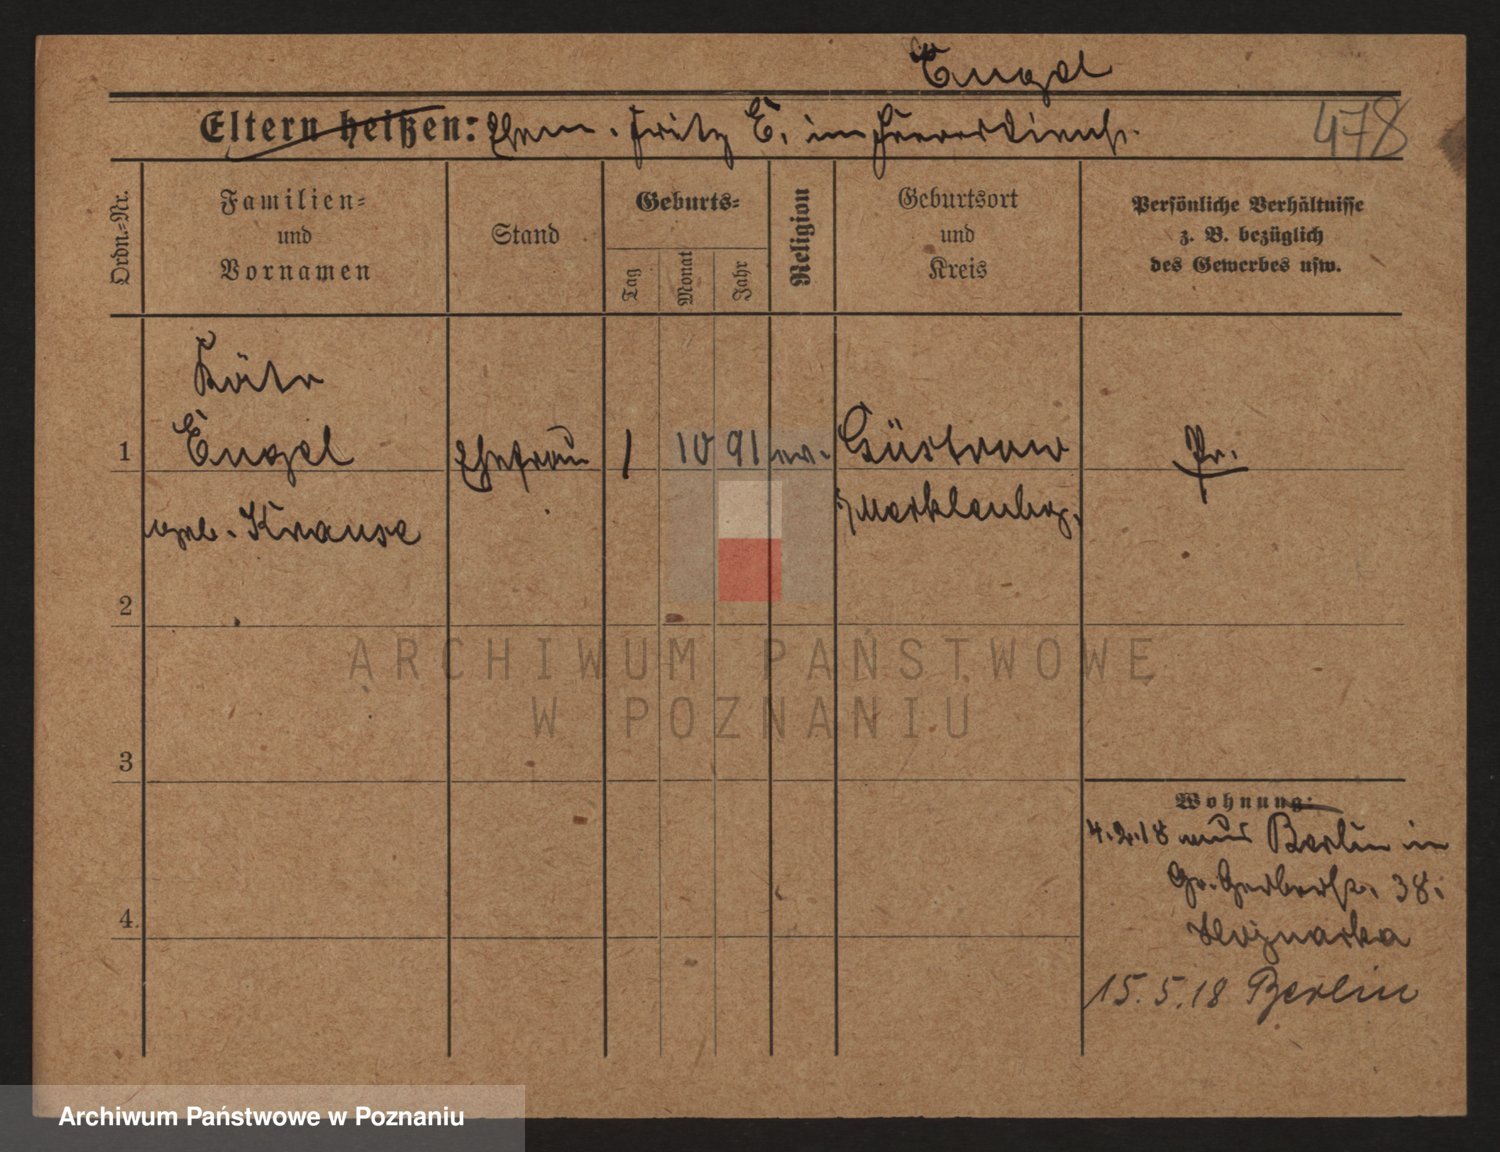 Engel
Eltern heißen: Ehem. Fritz E. im Heeresdienst.
478
Ordn.=Nr.
Familien=
und
Vornamen
Stand
Geburts=
Tag
Monat
Jahr
Religion
Geburtsort
und
Kreis
Persönliche Verhältnisse
z. B. bezüglich
des Gewerbes usw.
Käte
1 Engel Ehefrau 1 10 91 ev. Güstrow Pr.
geb. Krause
Mecklenbg.
2
3
4
Wohnung:
4.2.18 aus Berlin in
Gr. Gerberstr. 38.
15.5.18 Berlin
ARCHIWUM PAŃSTWOWE
W POZNANIU
Archiwum Państwowe w Poznaniu